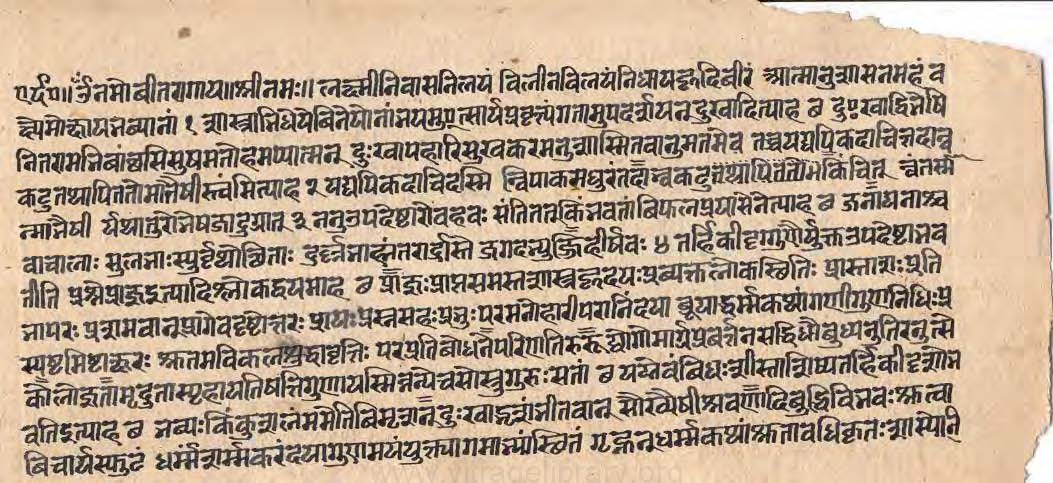 ॥ॐनमोवीतरागाय॥श्रीनमः॥ लक्ष्मीनिवासनिलयं विलीनविलयंनिधायहृदिवीरं आत्मानुशासनमहं व
क्ष्येमोक्षायभव्यानां १ शास्त्राभिधेयेविनेयानांभयमुत्सार्यप्रवृत्त्यंगतामुपदर्शयन्दुःखादित्याह छ दुःखाद्विभेषि
नितरामभिवांछसिसुखमतोहमप्यात्मन् दुःखापहारिसुखकरमनुशास्मितवानुमतमेव तच्चयद्यपिकदाचित्तदात्व
कटुतथापिततोमाभैषीस्त्वमित्याह २ यद्यपिकदाचिदस्मि न्विपाकमधुरंतदात्वकटुतथापिततोमाकिंचित् त्वंतस्मा
न्माभैषी र्यथातुरोभेषजादुग्रात् ३ ननुउपदेष्टारोबहवः संतितत्किंभवतांविफलप्रयासेनेत्याह छ जनाघनाश्च
वाचालाः सुलभाःस्युर्वृथोत्थिताः दुर्लभाह्यंतरार्द्रास्ते जगदभ्युज्जिहीर्षवः ४ तर्हिकीदृग्गुणैर्युक्तउपदेष्टाभव
तीति प्रश्नेप्राज्ञइत्यादिश्लोकद्वयमाह छ प्राज्ञःप्राप्तसमस्तशास्त्रहृदयःप्रव्यक्तलोकस्थितिः प्रास्ताशःप्रति
भापरः प्रशमवान्प्रागेवदृष्टोत्तरः प्रायःप्रश्नसहःप्रभुःपरमनोहारीपरानिंदया ब्रूयाद्धर्म्मकथांगणीगुणनिधिःप्र
स्पष्टमिष्टाक्षरः श्रुतमविकलंशुद्धावृत्तिः परप्रतिबोधनेपरिणतिरुरुद्योगोमार्गप्रवर्त्तनसद्विधौबुधनुतिरनुत्से
कोलोकज्ञतामृदुतास्पृहायतिपतिगुणायस्मिन्नन्येचसोस्तुगुरुः सतां छ यस्त्वेवंविधःशास्तातच्छिष्यतर्हिकीदृशोभ
वतिइत्याह छ भव्यःकिंकुशलंममेतिविमृशन्दुःखाद्भृशंभीतवान् सौख्यैषीश्रवणादिबुद्धिविभवःश्रुत्वा
विचार्यस्फुटं धर्म्मंशर्म्मकरंदयागुणमयंयुक्त्यागमाभ्यांस्थितं गृह्णन्धर्म्मकथांश्रुतावधिकृतःशास्योनि
www.vitragelibrary.org